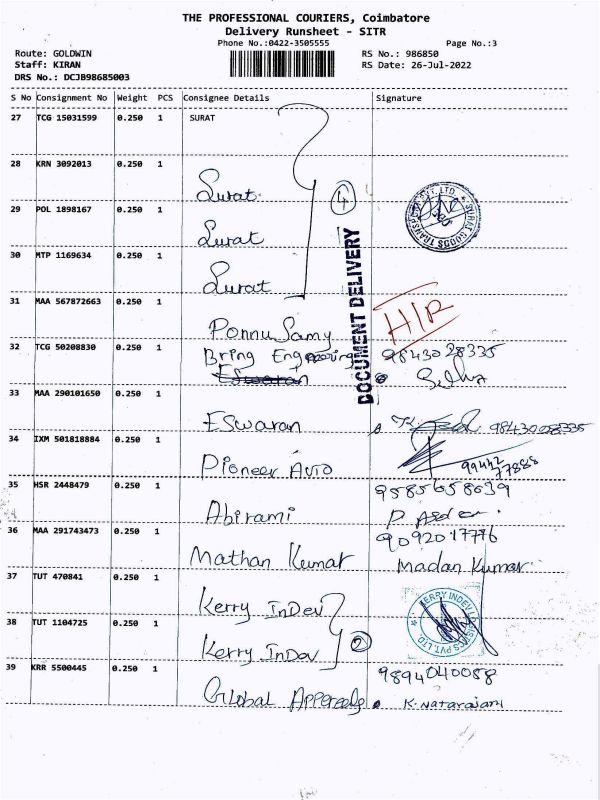 THE PROFESSIONAL COURIERS, Coimbatore
Delivery Runsheet - SITR
Phone No.:0422-3505555
Page No.:3
Route: GOLDWIN
RS No.: 986850
Staff: KIRAN
RS Date: 26-Jul-2022
DRS No.: DCJB98685003
S No Consignment No Weight PCS Consignee Details Signature
27 TCG 15031599 0.250 1 SURAT
28 KRN 3092013 0.250 1
Surat
4
29 POL 1898167 0.250 1
Surat
SURAT GOODS TRANSPORT PVT. LTD.
30 MTP 1169634 0.250 1
Surat
DOCUMENT DELIVERY
31 MAA 567872663 0.250 1
Ponnu Samy
H/R
32 TCG 50208830 0.250 1
Bring Engineering 9843028335
Eswaran
Selva
33 MAA 290101650 0.250 1
ESwaran 9843008335
34 IXM 501818884 0.250 1
Pioneer Auto 99442 77888
35 HSR 2448479 0.250 1
9585658639
Abirami
36 MAA 291743473 0.250 1
9092017776
Mathan Kumar Madan Kumar
37 TUT 470841 0.250 1
Kerry InDev
38 TUT 1104725 0.250 1
Kerry InDev
2
KERRY INDEV LOGISTICS PVT. LTD
39 KRR 5500445 0.250 1
9894040058
Global Appereals K. Natarajani